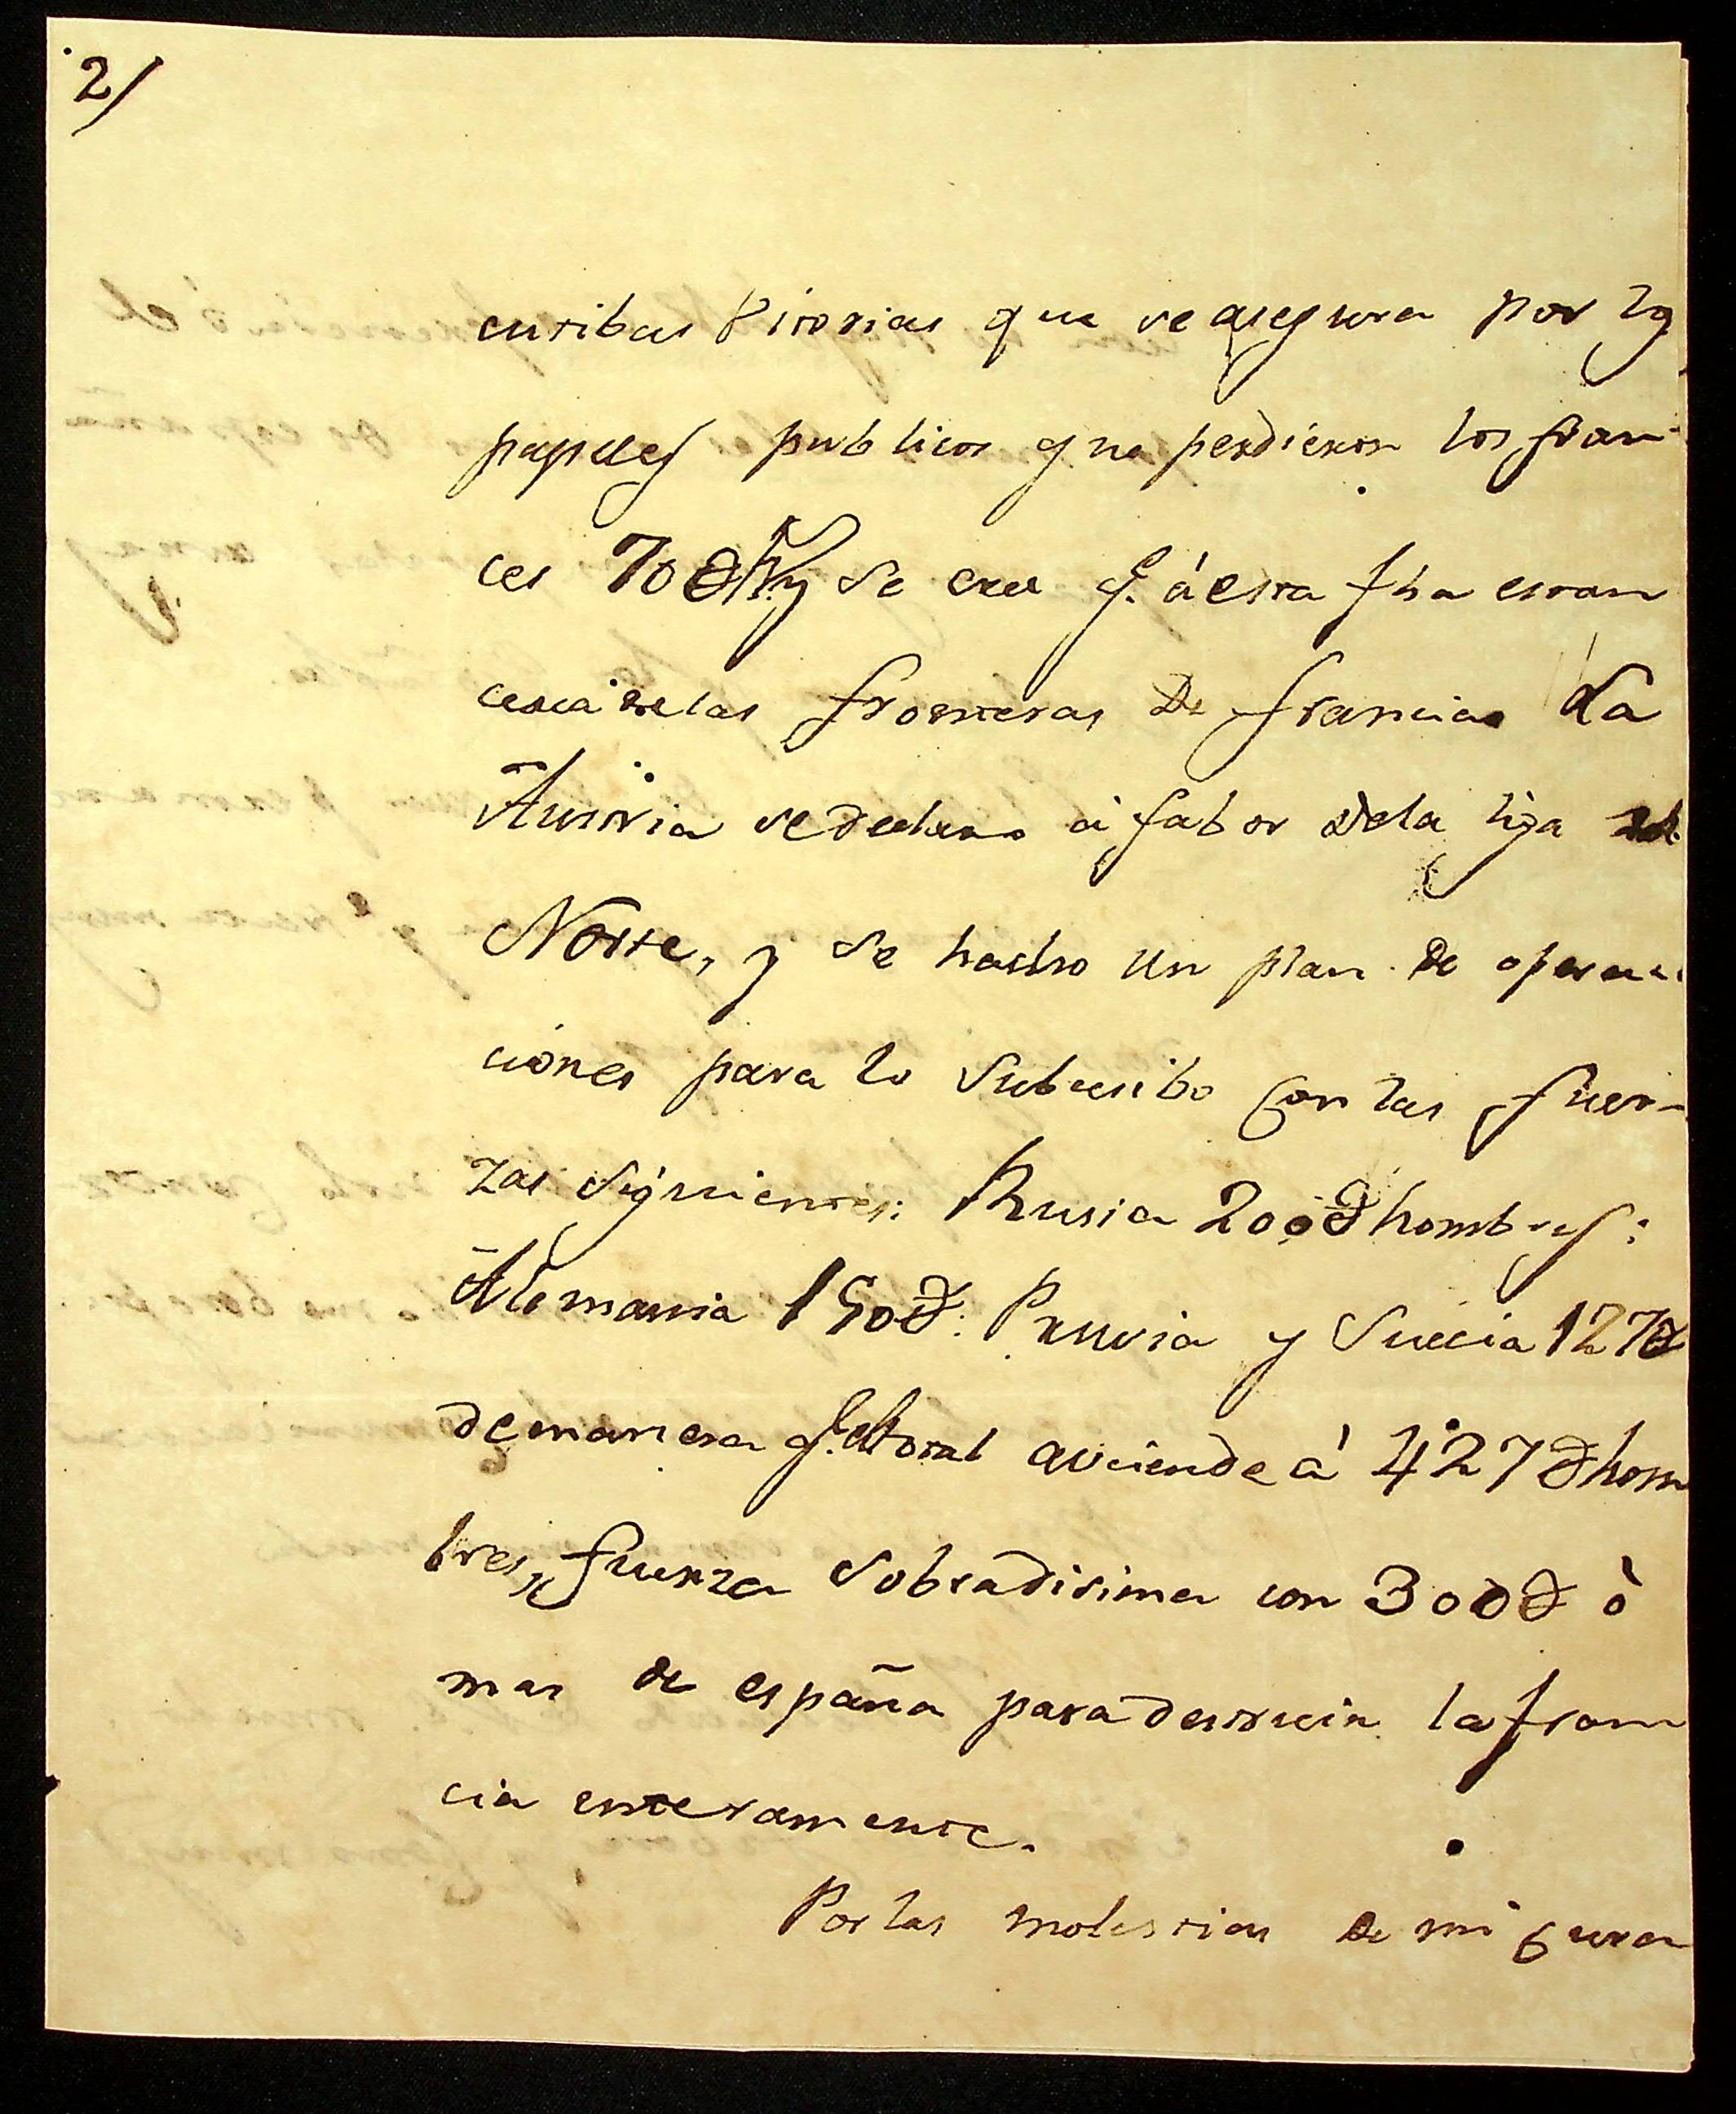 2/
cutibas Vitorias que se asegura por los
papeles publicos que perdieron los fran
ces 70 D h.s y se cree q.e á esta fha estan
cerca de las fronteras De francia La
Austria se declaro á fabor Dela liga del
Norte, y se hacho un plan De opera
ciones para lo Subcesibo Con las fuer-
zas Siguientes: Rusia 200 D hombres:
Alemania 150 D: Prusia y Suecia 127 D
demanera q.e el total asciende á 427 D hom
bres, fuerza Sobradisima con 300 D ò
mas de españa para destruir la fran
cia enteramente.
Por las molestias de mi Cura